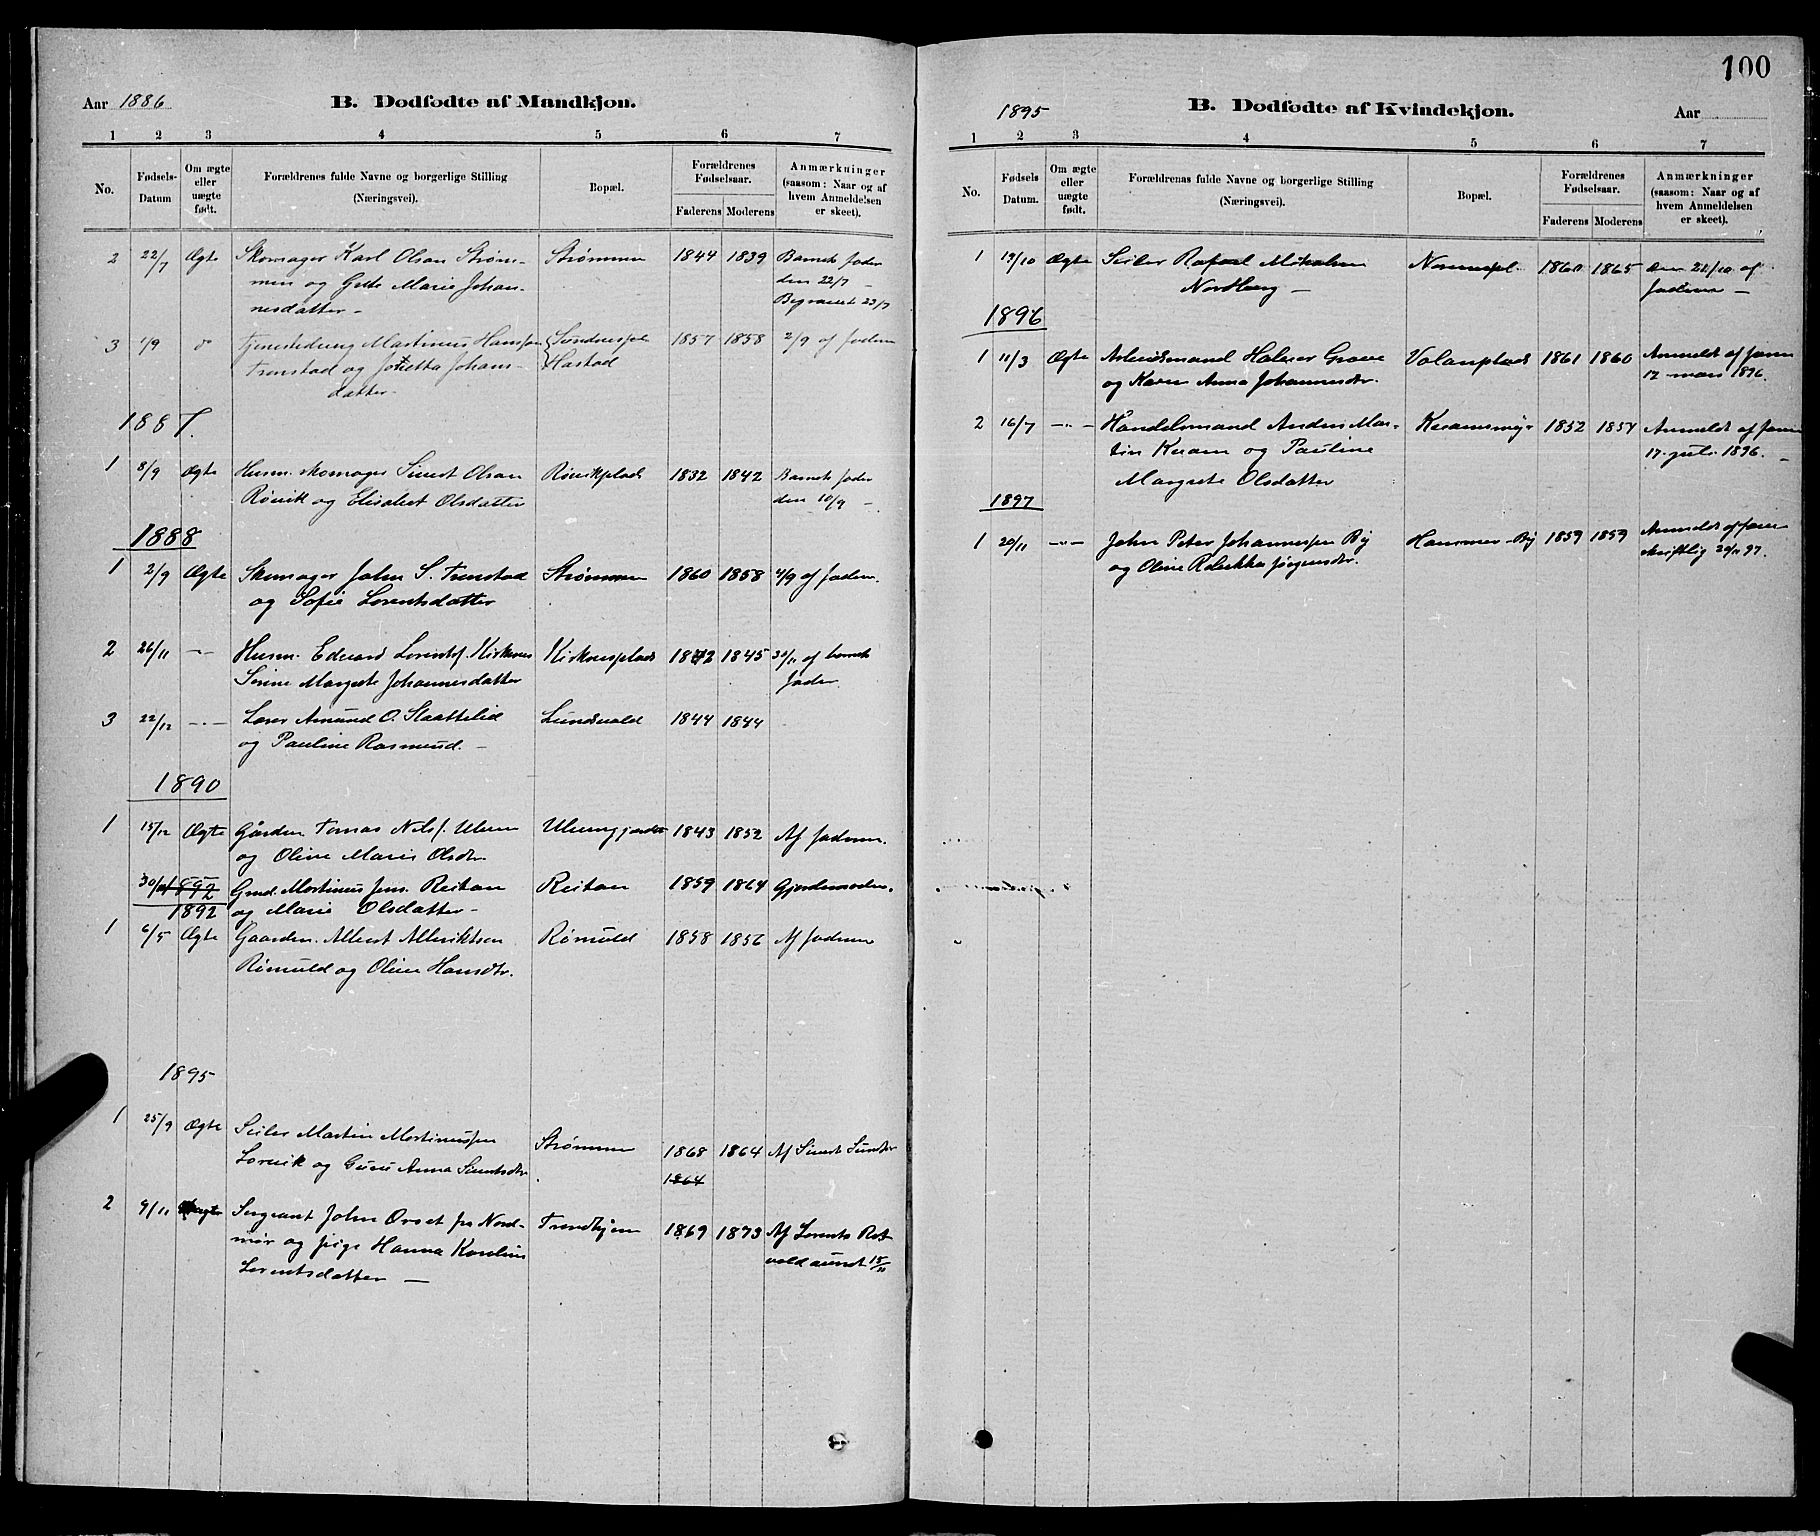 100
Aar 1886
B. Dødfødte af Mandkjøn.
1 2 3 4 5 6 7
No. Fødsels-Datum Om ægte eller uægte født. Forældrenes fulde Navne og borgerlige Stilling (Næringsvei). Bopæl. Forældrenes Fødselsaar. Faderens Moderens Anmærkninger (saasom: Naar og af hvem Anmeldelsen er skeet).
2 22/7 Ægte Skomager Karl Olsen Strøm- Strømmen 1844 1839 Barnets fader
men og Gete Marie Johan- den 22/7 –
nesdatter – Begravet 23/7
3 1/9 do Tjenestedreng Martinus Hanssen 1857 1858 2/9 af faderen
Trenstad og Jonetta Johans- Hastad
datter –
1887.
1 8/9 Ægte Husm. skomager Sivert Olsen Rørvikplads 1832 1842 Barnets fader
Rørvik og Elisabet Olsdatter den 10/9 –
1888
1 2/9 Ægte Skomager John S. Trenstad Strømmen 1860 1858 4/9 af faderen.
og Sofie Lorentsdatter
2 26/11 –"– Husm. Edvard Lorentsf. Kirknes Kirknesplads 1842 1845 30/11 af barnets
Serine Margrete Johannesdatter fader.
3 22/12 –"– Lærer Amund O. Slaattelid Lundsvald 1844 1844
og Pauline Rasmusd. –
1890
1 15/12 Ægte Gårdm. Tomas Nilsf. Ulven 1843 1852 Af faderen.
og Oline Marie Olsdtr.
1892 Gmd. Martinus Jens. Reitan Reitan 1859 1864 Gjordemoder.
1892 og Marie Olsdatter –
1 6/5 Ægte Gaardm. Albert Albriktsen Rømuld 1858 1856 Af faderen
Rømuld og Oline Hansdtr.
1895
1 25/9 Ægte Seiler Martin Martinussen Strømmen 1868 1864 Af Sivert
Lorvik og Guru Anna Sivertsdtr. 1864
2 9/11 Sergeant John Orset fra Nord- Trondhjem 1869 1873 Af Lorents
mør og pige Hanna Karoline
Lorentsdatter –
1895
B. Dødfødte af Kvindekjøn.
Aar
1 2 3 4 5 6 7
No. Fødsels Datum. Om ægte eller uægte født. Forældrenas fulde Navne og borgerlige Stilling (Næringsvei). Bopæl. Forældrenes Fødselsaar. Faderens Moderens Anmærkninger (saasom: Naar og af hvem Anmeldelsen er skeet).
1 19/10 Ægte Seiler Rafael Mikalsen 1860 1865 den 22/10 af
Nordberg – faderen –
1896
1 11/3 Ægte Arbeidsmand Halvor Grave Valanplads 1861 1860 Anmeldt af faren
og Karen Anna Johannesdtr. 12 mars 1896.
2 16/7 –"– Handelsmand Anders Mar- 1852 1854 Anmeldt af faren
tin Kvam og Pauline 17. juli 1896. –
Margrete Olsdatter
1897
1 20/11 –"– John Peter Johannessen By Hammer–By 1859 1859 Anmeldt af faren
og Oline Rebekka Jørgensdtr. skriftlig 29/11 97.